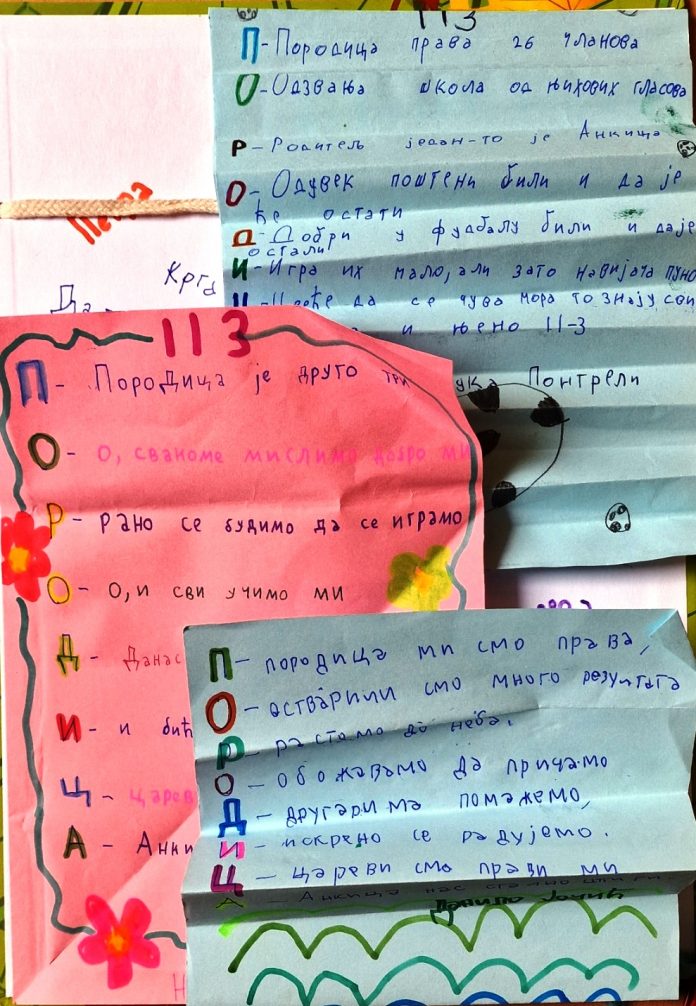 113
П - Породица права 26 чланова
О - Одзвања школа од њихових гласова
Р - Родитељ један-то је Анкица
О - Одувек поштени били и да је
ће остати
Д - Добри у фудбалу били и даје
остали
И - Игра их мало, али зато навијача пуно
да се чува мора то знају сви
и њено 11-3
Понтрели
Крга
113
П - Породица је друго три
О - О, сваноме мислимо добро ми
Р - Рано се будимо да се играмо
О - О, и сви учимо ми
Д - Данас
И - и бић
Ц - Царев
А - Анки
П - породица ми смо права,
О - астварили смо много резултата
Р - растамо до неба.
О - обожавамо да причамо
Д - другарима помажемо,
И - искрено се радујемо.
Ц - цареви смо прави ми
А - Анкица нас стално